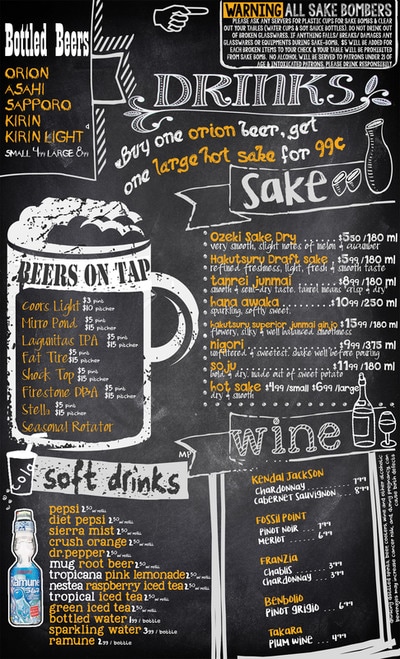 WARNING ALL SAKE BOMBERS
PLEASE ASK ANY SERVERS FOR PLASTIC CUPS FOR SAKE BOMBS & CLEAR
OUT YOUR TABLES (WATER CUPS & SOY SAUCE BOTTLES). DO NOT DRINK OUT
OF BROKEN GLASSWARES. IF ANYTHING FALLS/ BREAKS/ DAMAGES ANY
GLASSWARES OR EQUIPMENTS DURING SAKE-BOMB, $5 WILL BE ADDED FOR
EACH BROKEN ITEMS TO YOUR CHECK & YOUR TABLE WILL BE PROHIBITED
FROM SAKE BOMB. NO ALCOHOL WILL BE SERVED TO PATRONS UNDER 21 OF
AGE & INTOXICATED PATRONS. PLEASE DRINK RESPONSIBLY
Bottled Beers
ORION
ASAHI
SAPPORO
KIRIN
KIRIN LIGHT
SMALL 4.99 LARGE 8.99
DRINKS
Buy one orion beer, get
one large hot sake for 99¢
sake
Ozeki Sake Dry . . . $3.50 /180 ml
very smooth, slight notes of melon & cucumber
Hakutsuru Draft sake . . $5.99 /180 ml
refined freshness, light, fresh & smooth taste
tanrei junmai . . . $8.99 /180 ml
smooth & semi-dry taste. tanrei means "crisp & dry"
hana awaka . . . $10.99 /250 ml
sparkling, softly sweet
hakutsuru superior junmai ginjo $15.99 /180 ml
flowery, silky & well balanced smoothness
nigori . . . $9.99 /375 ml
unfiltered & sweetest. Shake well before pouring
so.ju . . . $11.99 /180 ml
bold & dry. made out of sweet potato
hot sake $4.99 /small $6.99 /large
dry & smooth
BEERS ON TAP
Coors Light $3 pint $10 pitcher
Mirro Pond $5 pint $15 pitcher
Lagunitas IPA $5 pint $15 pitcher
Fat Tire $5 pint $15 pitcher
Shock Top $5 pint $15 pitcher
Firestone DBA $5 pint $15 pitcher
Stella $5 pint $15 pitcher
Seasonal Rotator
soft drinks
pepsi 2.50 w/ refill
diet pepsi 2.50 w/ refill
sierra mist 2.50 w/ refill
crush orange 2.50 w/ refill
dr.pepper 2.50 w/ refill
mug root beer 2.50 w/ refill
tropicana pink lemonade 2.50 w/ refill
nestea raspberry iced tea 2.50 w/ refill
tropical iced tea 2.50 w/ refill
green iced tea 2.50 w/ refill
bottled water 1.99 / bottle
sparkling water 3.99 / bottle
ramune 2.99 / bottle
Ramune
wine
KENDAL JACKSON
CHARDONNAY . . . 7.99
CABERNET SAUVIGNON . . 8.99
FOSSIL POINT
PINOT NOIR . . . 7.99
MERLOT . . . 6.99
FRANZIA
CHABLIS . . . 3.99
CHARDONNAY . . 3.99
BENBOLIO
PINOT GRIGIO . . 6.99
TAKARA
PLUM WINE . . . 4.99